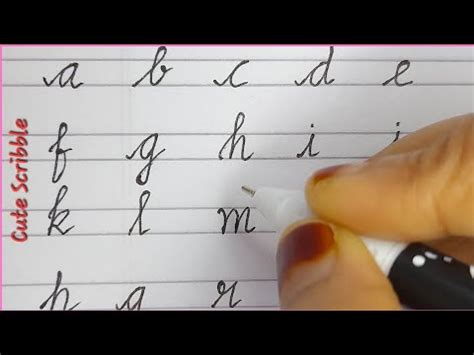 Cute Scribble
a b c d e
f g h i j
k l m
p q r